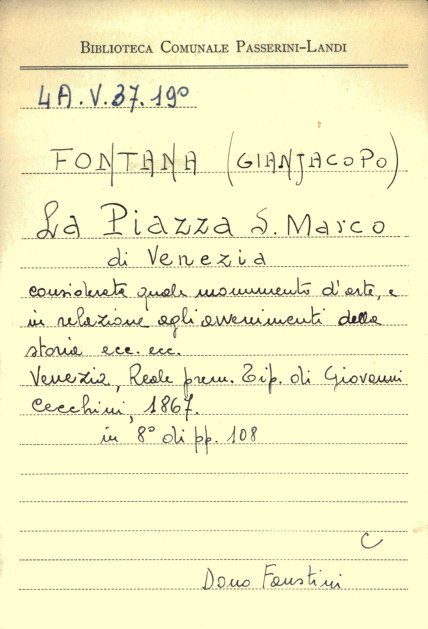 BIBLIOTECA COMUNALE PASSERINI-LANDI
4A.V.37.19º
FONTANA (GIANJACOPO)
La Piazza S. Marco
di Venezia
considerata quale monumento d'arte, e
in relazione agli avvenimenti della
storia ecc. ecc.
Venezia, Reale prem. Tip. di Giovanni
Cecchini, 1867.
in 8º di pp. 108
C
Dono Faustini